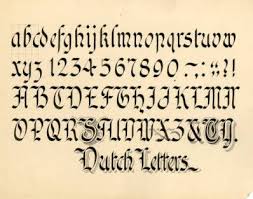 abcdefghijklmnopqrstuvw
xyz 1234567890 .,:;"?!
ABCDEFGHIJKLMN
OPQRSTUVWXYZ&
Dutch Letters